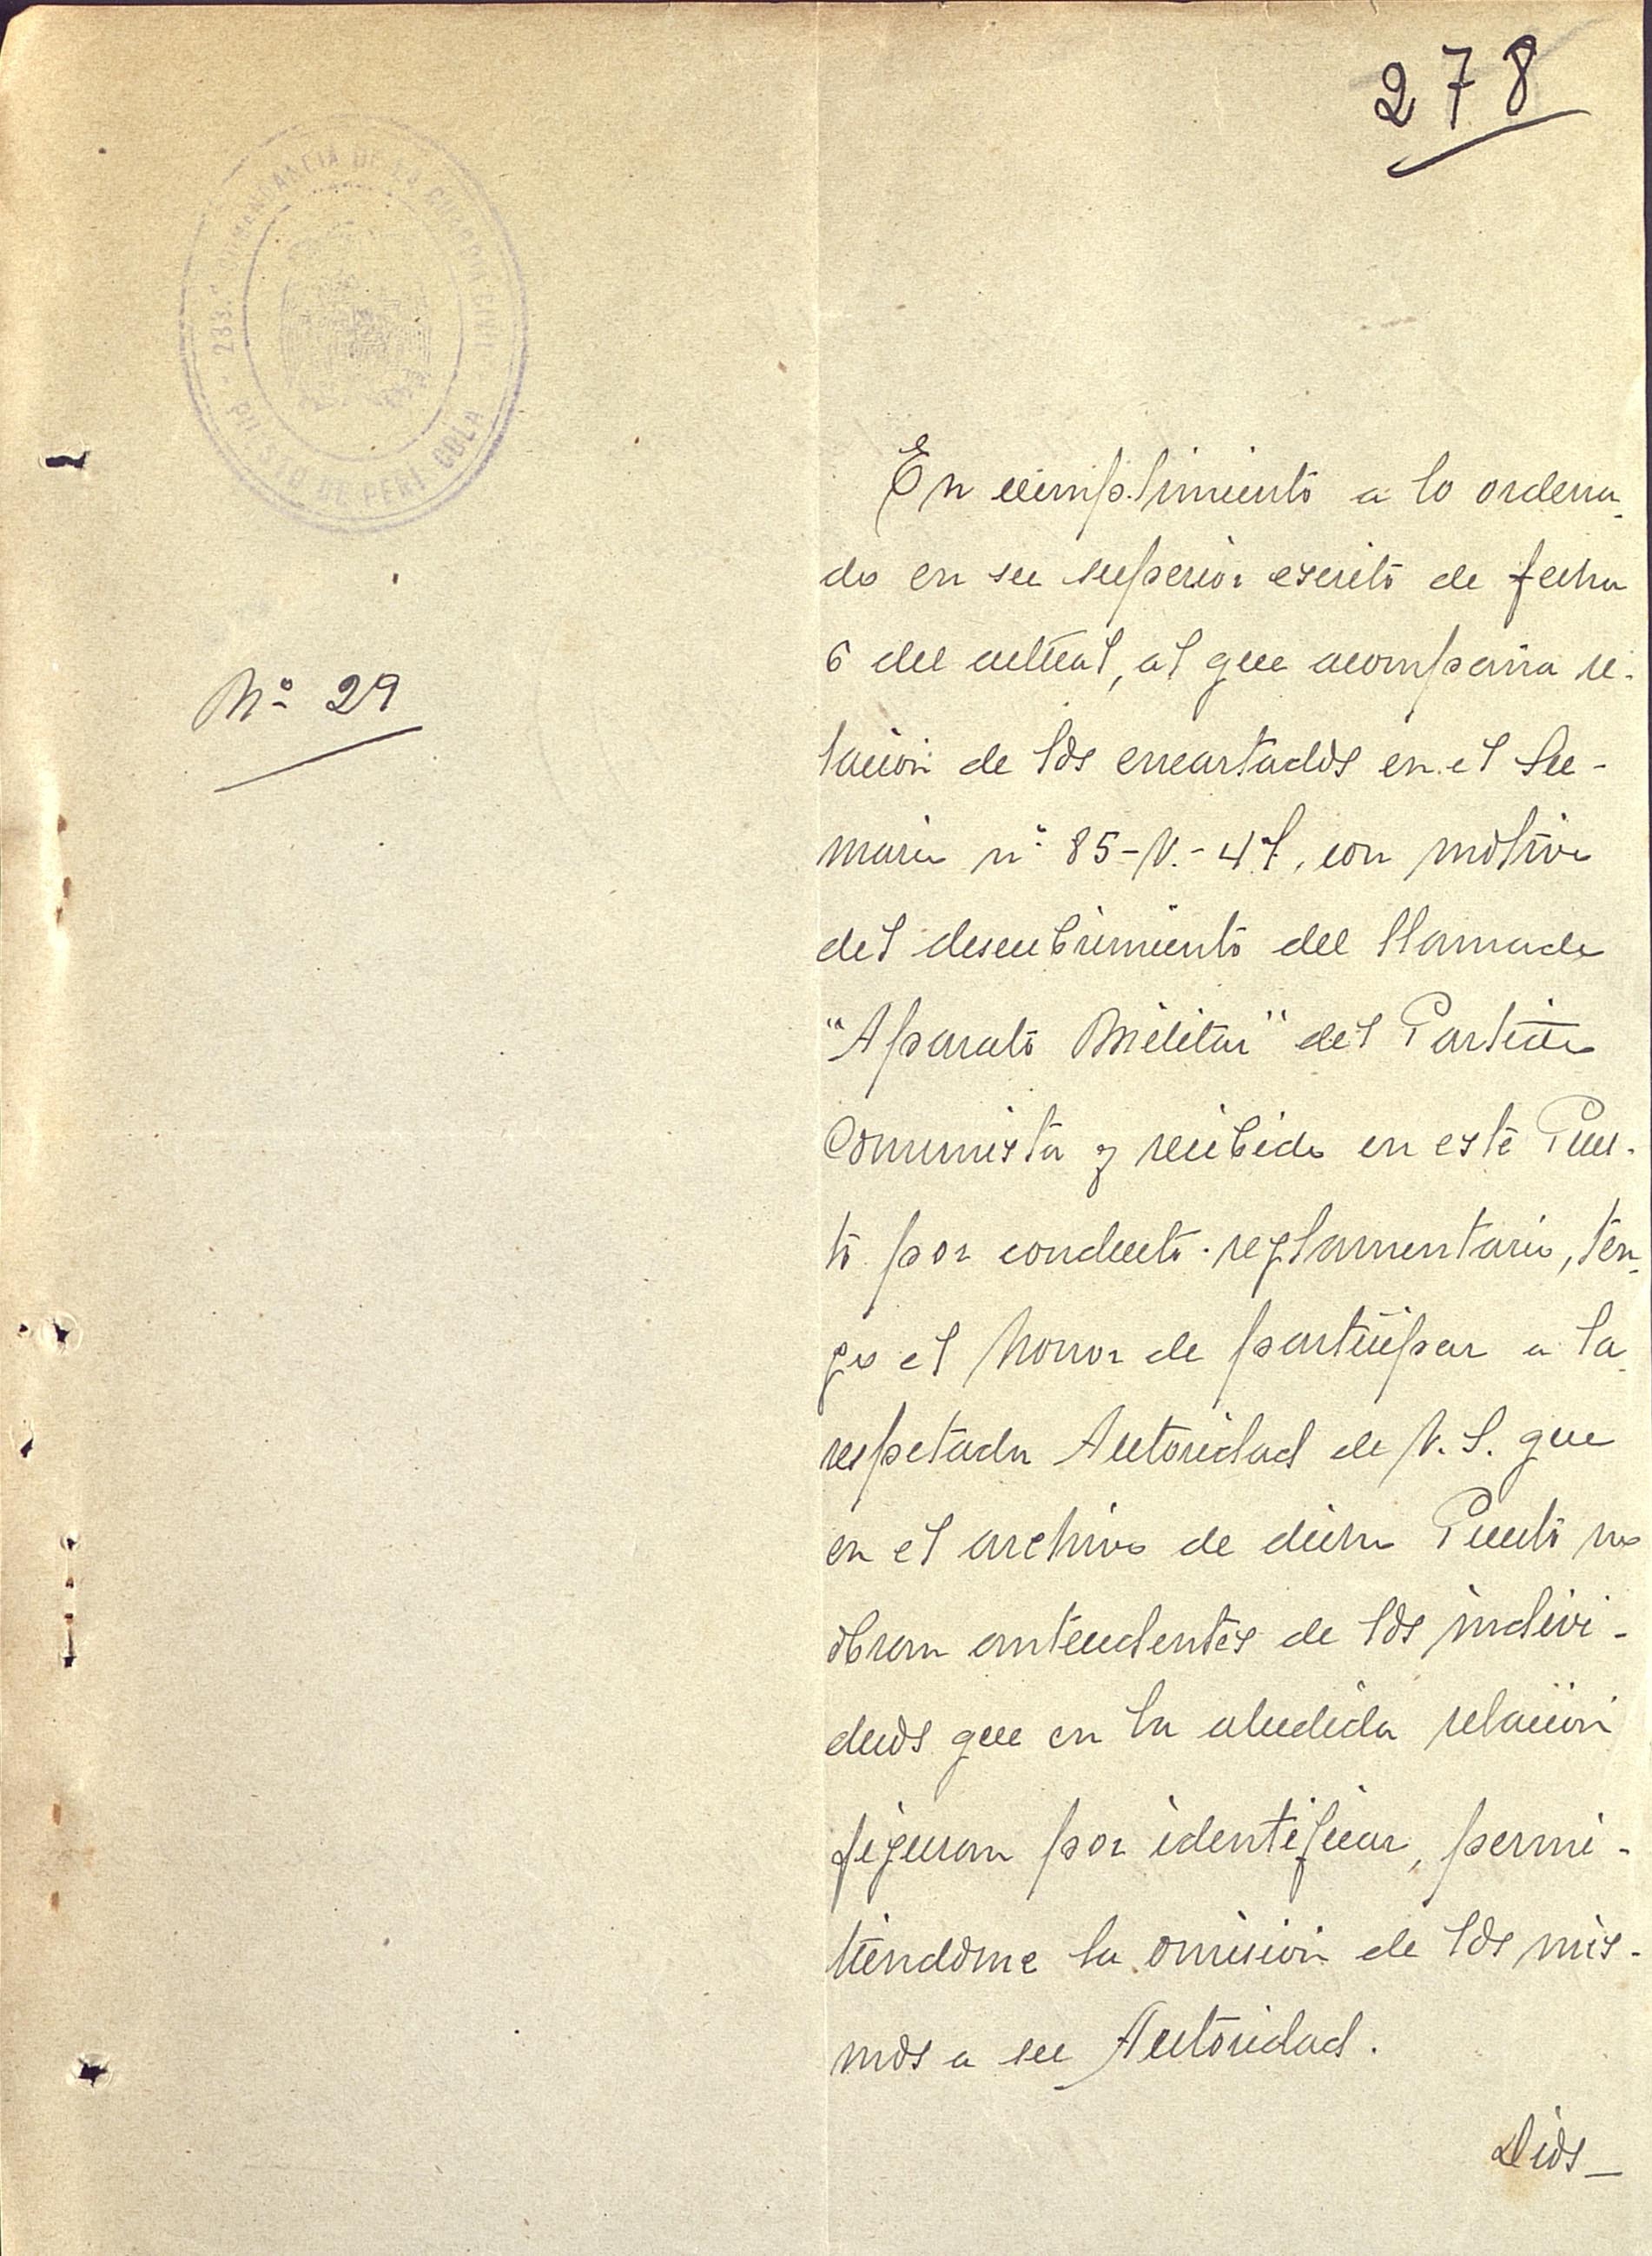 278
233.ª COMANDANCIA DE LA GUARDIA CIVIL
PUESTO DE PEÑISCOLA
Nº 29
En cumplimiento a lo ordena-
do en su superior escrito de fecha
6 del actual, al que acompaña re-
lación de los encartados en el Su-
mario nº 85-V.-47, con motivo
del descubrimiento del llamado
"Aparato Militar" del Partido
Comunista y recibido en este Pues-
to por conducto reglamentario, ten-
go el honor de participar a la
respetada Autoridad de V. S. que
en el archivo de dicho Puesto no
obran antecedentes de los indivi-
duos que en la aludida relación
figuran por identificar, permi-
tiendome la omisión de los mis-
mos a su Autoridad.
Dios_